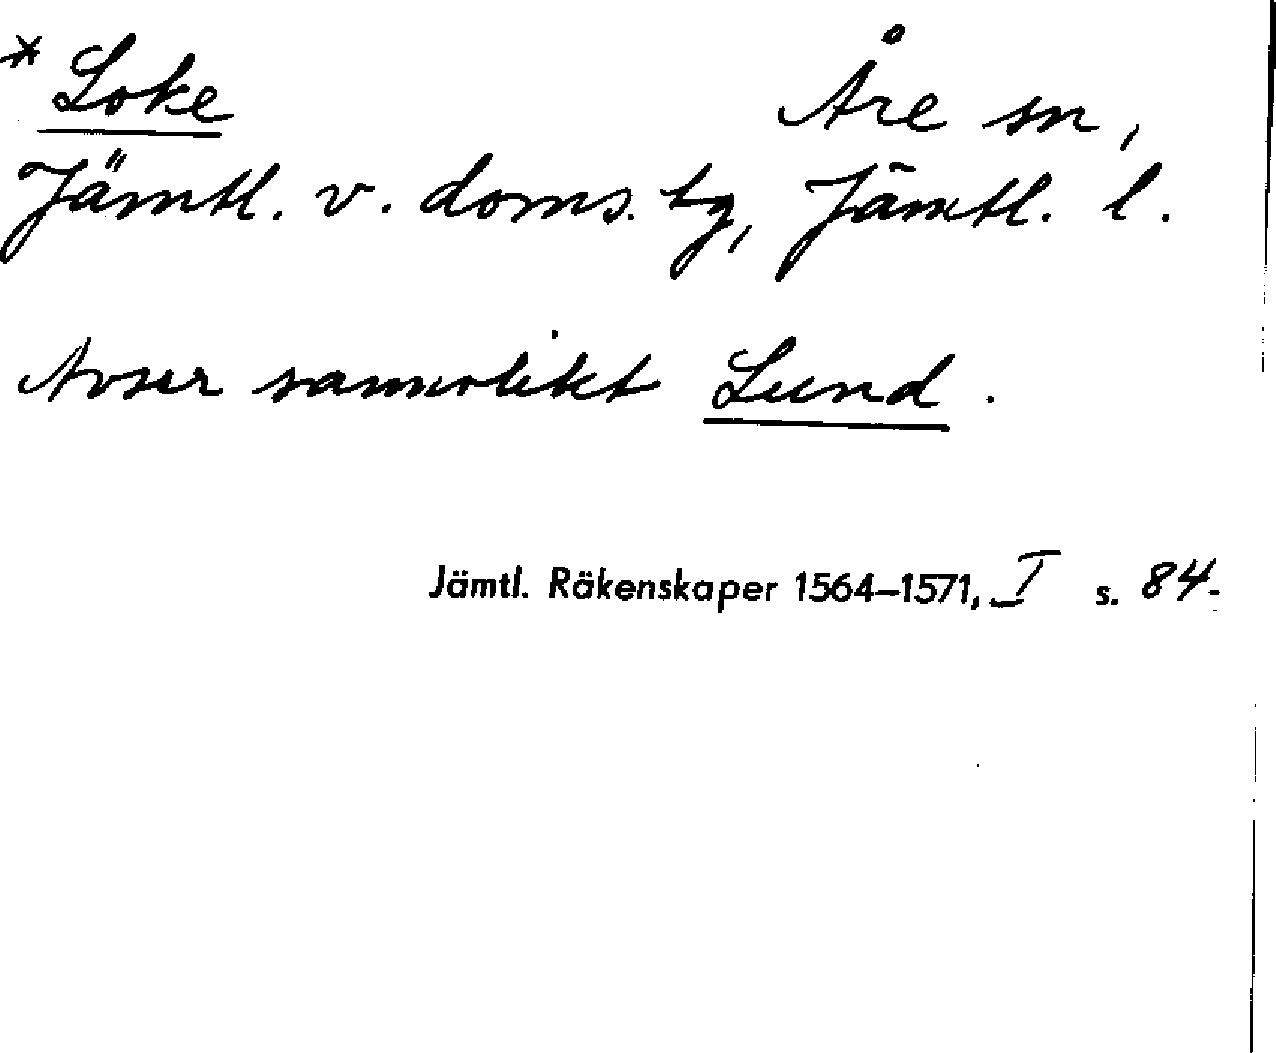 * Loke Åre sn,
Jämtl. v. doms. tg, Jämtl. l.
Avser sannolikt Lund.
Jämtl. Räkenskaper 1564–1571, I s. 84.